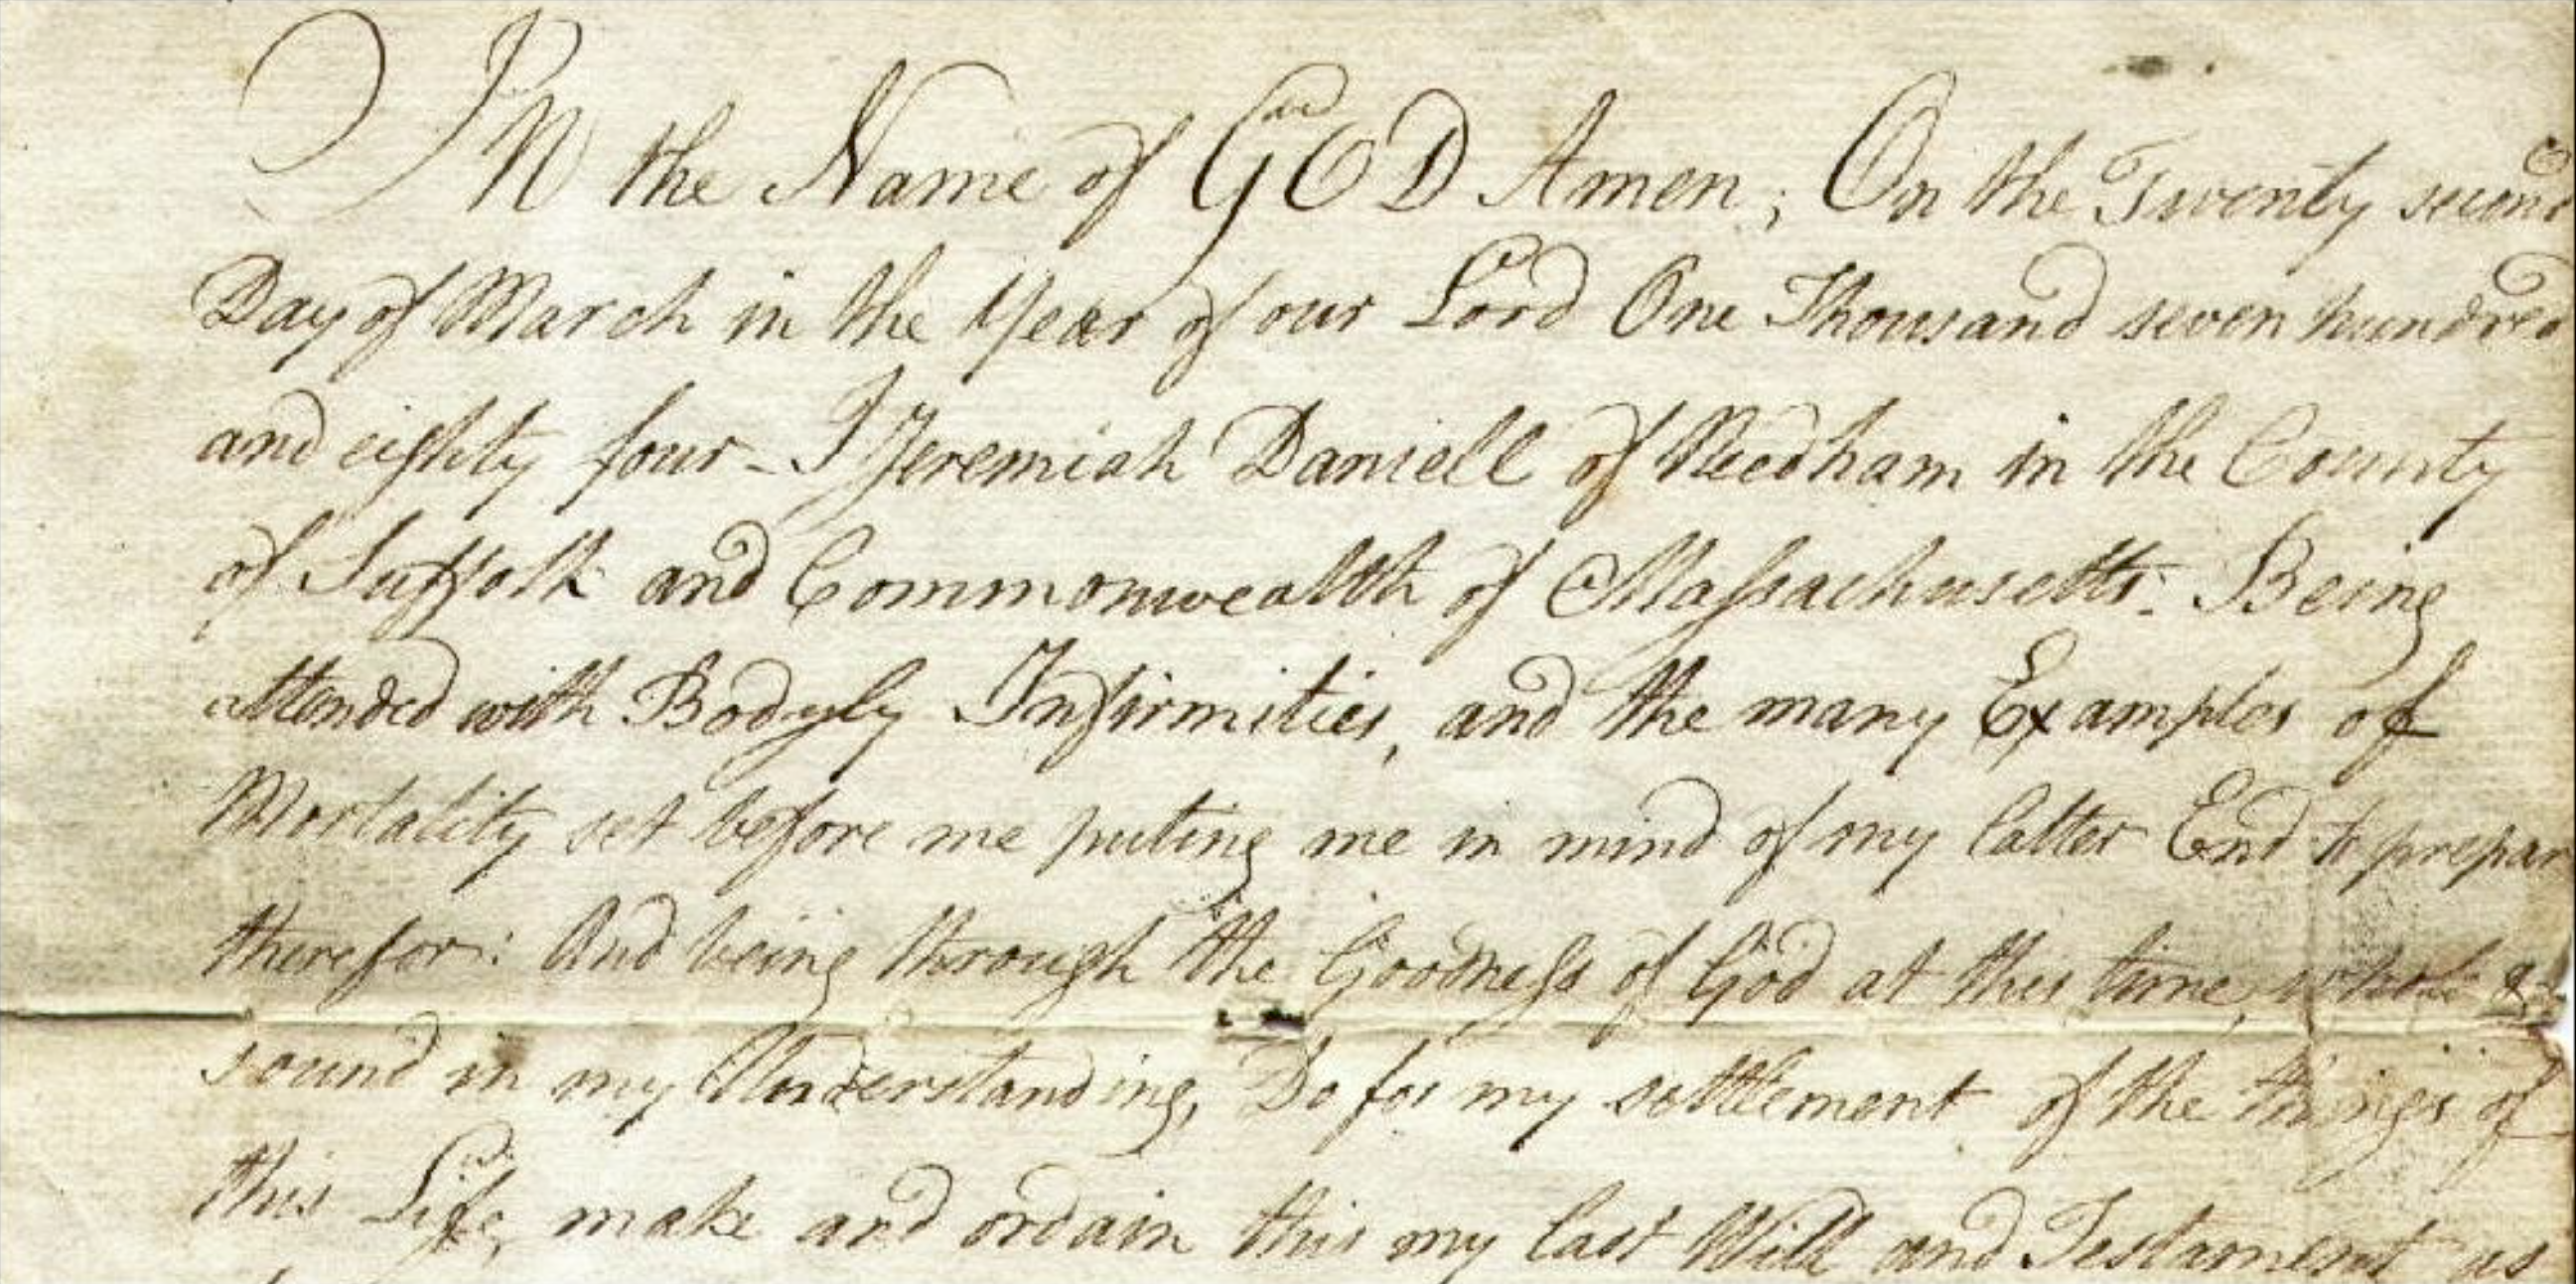 IN the Name of GOD Amen; On the Twenty second
Day of March in the Year of our Lord One Thousand seven hundred
and eighty four - I Jeremiah Daniell of Needham in the County
of Suffolk and Commonwealth of Massachusetts. Being
attended with Bodyly Infirmities, and the many Examples of
Mortality set before me puting me in mind of my latter End to prepar
therefor: And being through the Goodness of God at this time, whole &
sound in my Understanding, Do for my settlement of the things of
this Life, make and ordain this my last Will and Testament as